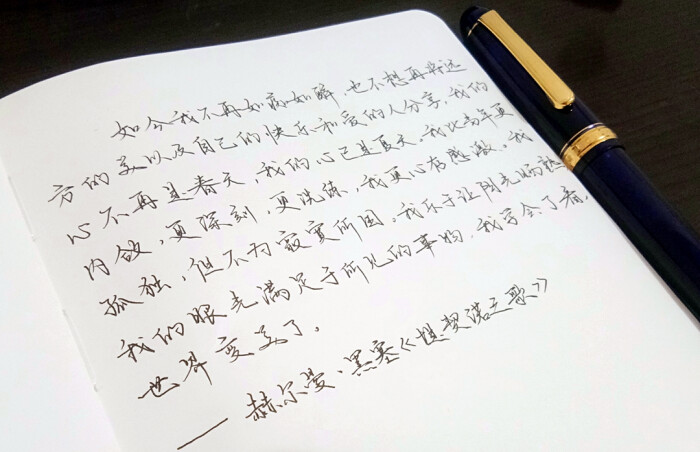 如今我不再如痴如醉,也不想再将远
方的美以及自己的快乐和爱的人分享,我的
心不再是春天,我的心已是夏天。我比当年更
内敛,更深刻,更洗练,我更心存感激。我
孤独,但不为寂寞所困。我乐于让阳光晒熟。
我的眼光满足于所见的事物,我学会了看,
世界变美了。
——赫尔曼·黑塞《提契诺之歌》